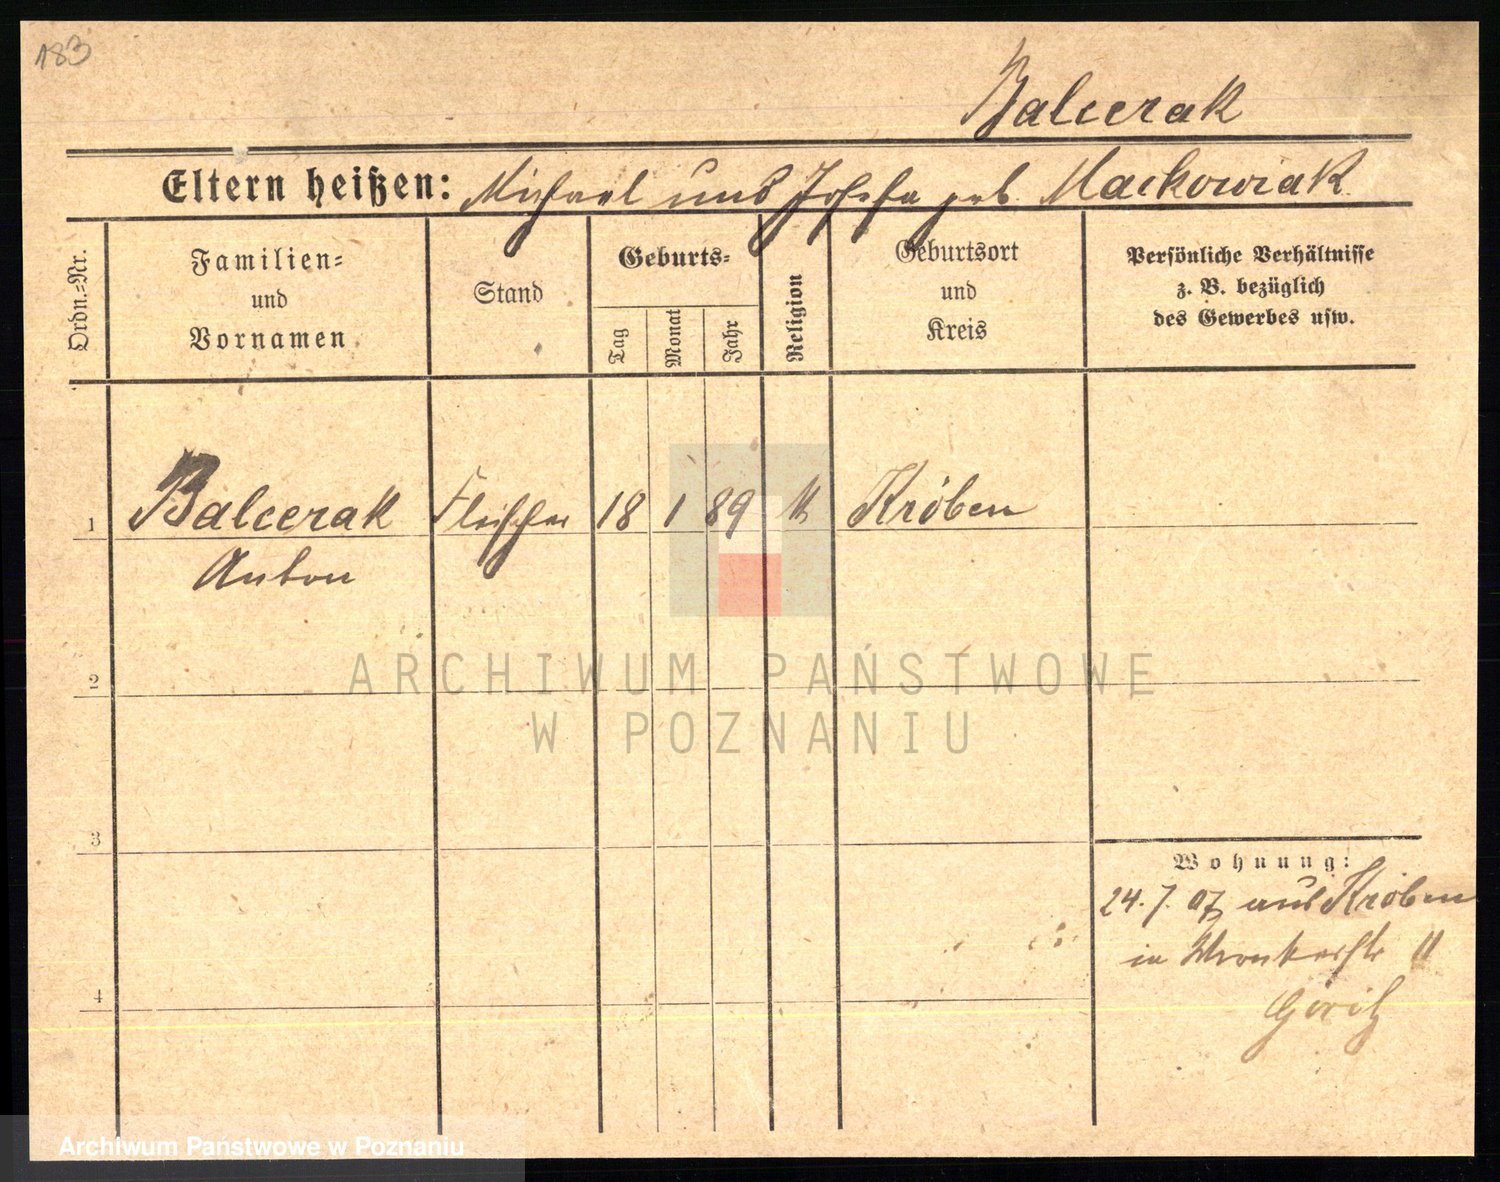 183
Balcerak
Eltern heißen: Michael und Josefa geb. Mackowiak
Ordn.=Nr.
Familien=
und
Vornamen
Stand
Geburts=
Tag
Monat
Jahr
Religion
Geburtsort
und
Kreis
Persönliche Verhältnisse
z. B. bezüglich
des Gewerbes usw.
1 Balcerak Fleischer 18 1 89 k Kröben
Anton
2
ARCHIWUM PAŃSTWOWE
W POZNANIU
3
Wohnung:
24. 7. 07 aus Kröben
in Wronkerstr 11
4
Archiwum Państwowe w Poznaniu